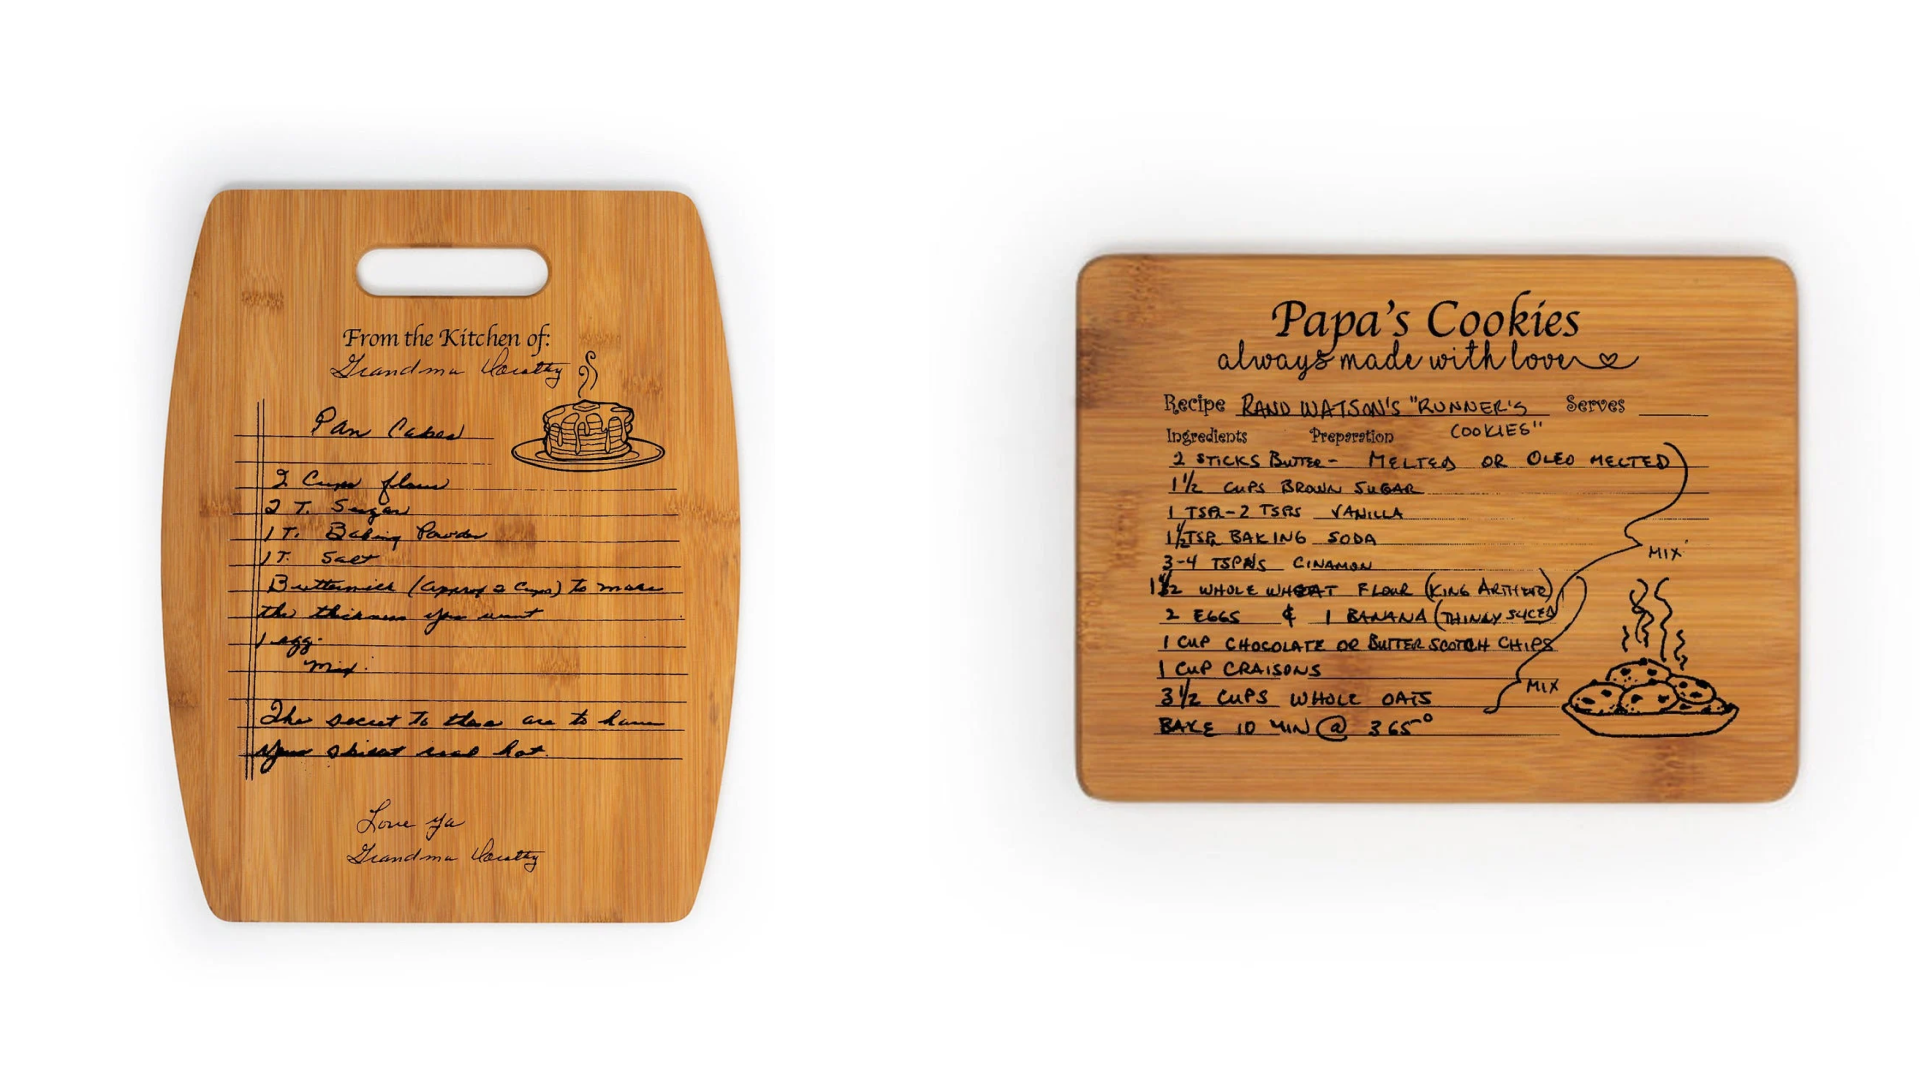 From the Kitchen of:
Grandma Dorothy
Pan Cakes
2 Cups flour
2 T. Sugar
1 T. Baking Powder
1 T. Salt
Buttermilk (approx 2 Cups) to make
the thickness you want
1 egg.
Mix.
The secret to these are to have
your skillet real hot.
Love ya
Grandma Dorothy
Papa's Cookies
always made with love
Recipe RAND WATSON'S "RUNNER'S Serves
COOKIES"
Ingredients Preparation
2 STICKS BUTTER - MELTED OR OLEO MELTED
1 1/2 CUPS BROWN SUGAR
1 TSP - 2 TSPS VANILLA
1 1/2 TSP BAKING SODA
MIX
3-4 TSPNS CINAMON
1 1/2 WHOLE WHEAT FLOUR (KING ARTHER)
2 EGGS & 1 BANANA (THINLY SLICED)
1 CUP CHOCOLATE OR BUTTERSCOTCH CHIPS
1 CUP CRAISONS
MIX
3 1/2 CUPS WHOLE OATS
BAKE 10 MIN @ 365°